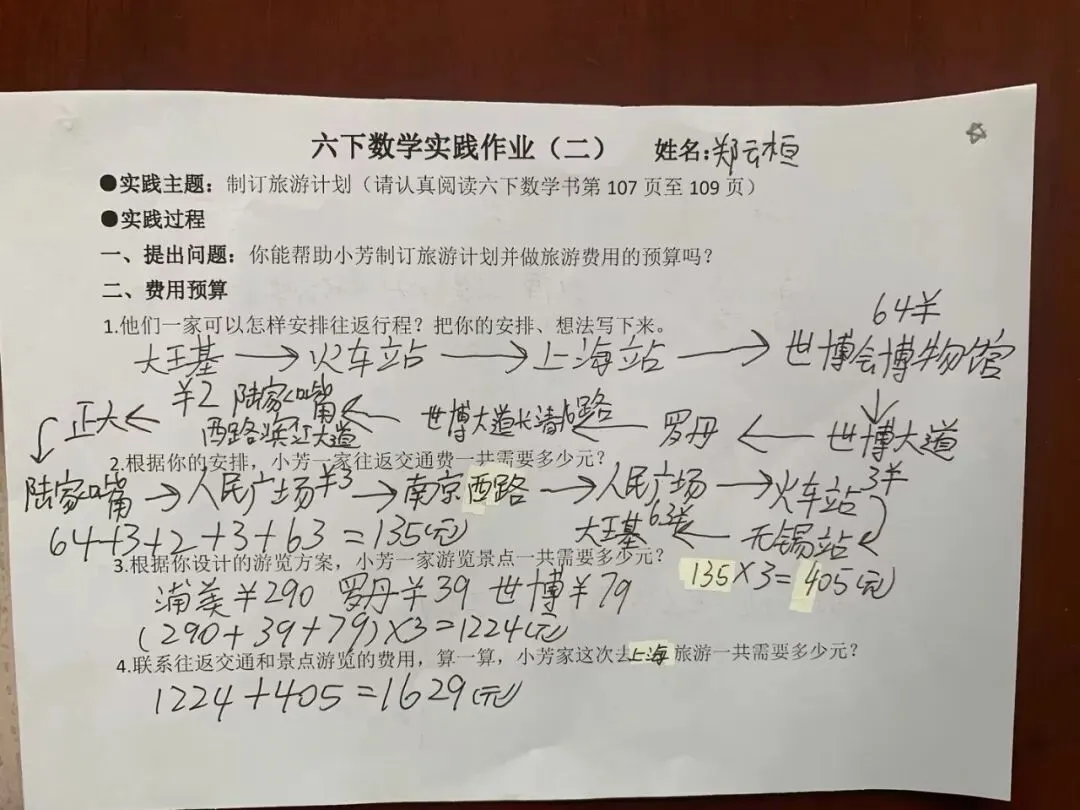 六下数学实践作业（二） 姓名:郑云桓
●实践主题：制订旅游计划（请认真阅读六下数学书第 107 页至 109 页）
●实践过程
一、提出问题：你能帮助小芳制订旅游计划并做旅游费用的预算吗？
二、费用预算
1.他们一家可以怎样安排往返行程？把你的安排、想法写下来。
64¥
大王基→火车站→上海站→世博会博物馆
正大← ¥2 陆家嘴西路滨江大道←世博大道长清路←罗丹←世博大道
2.根据你的安排，小芳一家往返交通费一共需要多少元？
陆家嘴→人民广场¥3→南京西路→人民广场→火车站3¥
64+3+2+3+63=135(元) 大王基63¥←无锡站
3.根据你设计的游览方案，小芳一家游览景点一共需要多少元？
135×3=405(元)
浦美¥290 罗丹¥39 世博¥79
(290+39+79)×3=1224(元)
4.联系往返交通和景点游览的费用，算一算，小芳家这次去上海旅游一共需要多少元？
1224+405=1629(元)